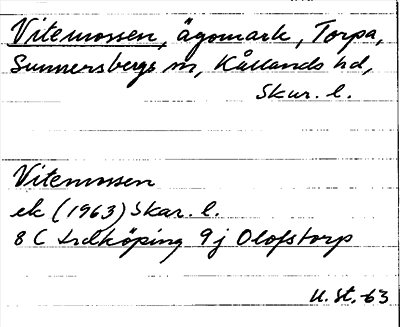 Vitemossen, ägomark, Torpa,
Sunnersbergs sn, Kållands hd,
Skar. l.
Vitemossen
ek (1963) Skar. l.
8 C Lidköping 9j Olofstorp
U. St. -63